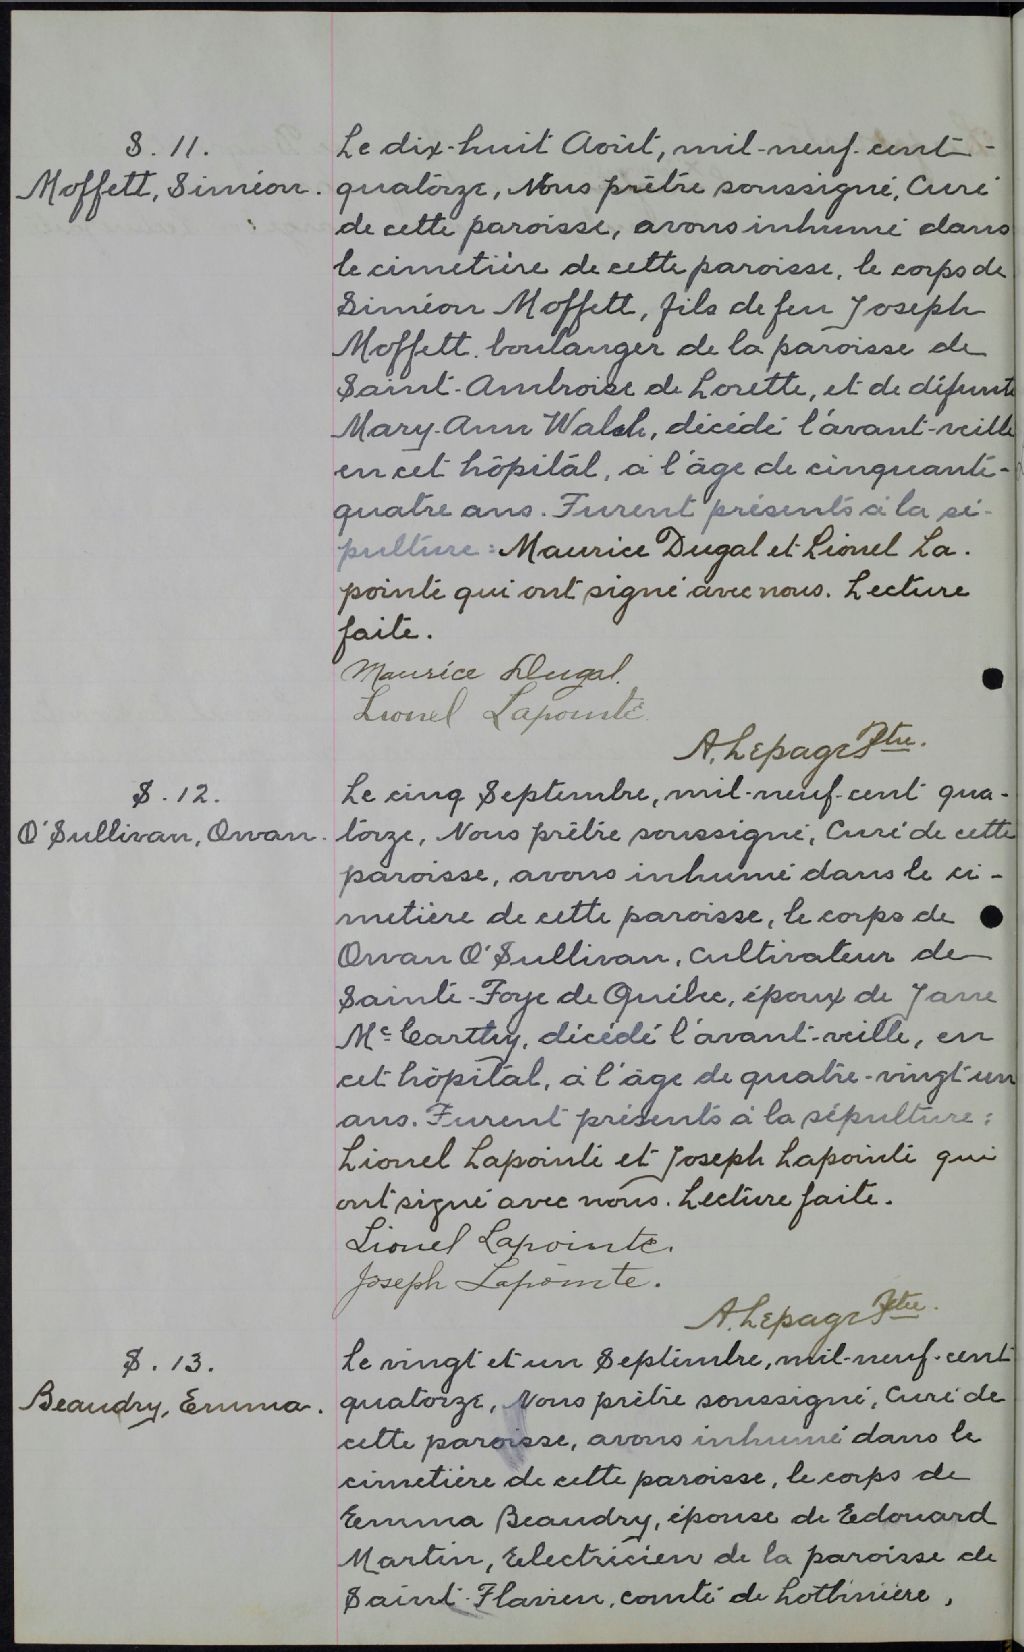 S. 11.
Moffett, Siméon.
Le dix-huit Août, mil-neuf-cent-
quatorze, Nous prêtre soussigné, Curé
de cette paroisse, avons inhumé dans
le cimetière de cette paroisse, le corps de
Siméon Moffett, fils de feu Joseph
Moffett, boulanger de la paroisse de
Saint-Ambroise de Lorette, et de défunte
Mary-Ann Walsh, décédé l'avant-veille
en cet hôpital, à l'âge de cinquante-
quatre ans. Furent présents à la sé-
pulture: Maurice Dugal et Lionel La-
pointe qui ont signé avec nous. Lecture
faite.
Maurice Dugal.
Lionel Lapointe.
A. Lepage Ptre.
S. 12.
O'Sullivan, Owan.
Le cinq Septembre, mil-neuf-cent qua-
torze, Nous prêtre soussigné, Curé de cette
paroisse, avons inhumé dans le ci-
metière de cette paroisse, le corps de
Owan O'Sullivan, cultivateur de
Sainte-Foye de Québec, époux de Jane
Mc Carthy, décédé l'avant-veille, en
cet hôpital, à l'âge de quatre-vingt-un
ans. Furent présents à la sépulture:
Lionel Lapointe et Joseph Lapointe qui
ont signé avec nous. Lecture faite.
Lionel Lapointe.
Joseph Lapointe.
A. Lepage Ptre.
S. 13.
Beaudry, Emma.
Le vingt et un Septembre, mil-neuf-cent
quatorze, Nous prêtre soussigné, Curé de
cette paroisse, avons inhumé dans le
cimetière de cette paroisse, le corps de
Emma Beaudry, épouse de Edouard
Martin, Electricien de la paroisse de
Saint-Flavien, comté de Lotbinière,